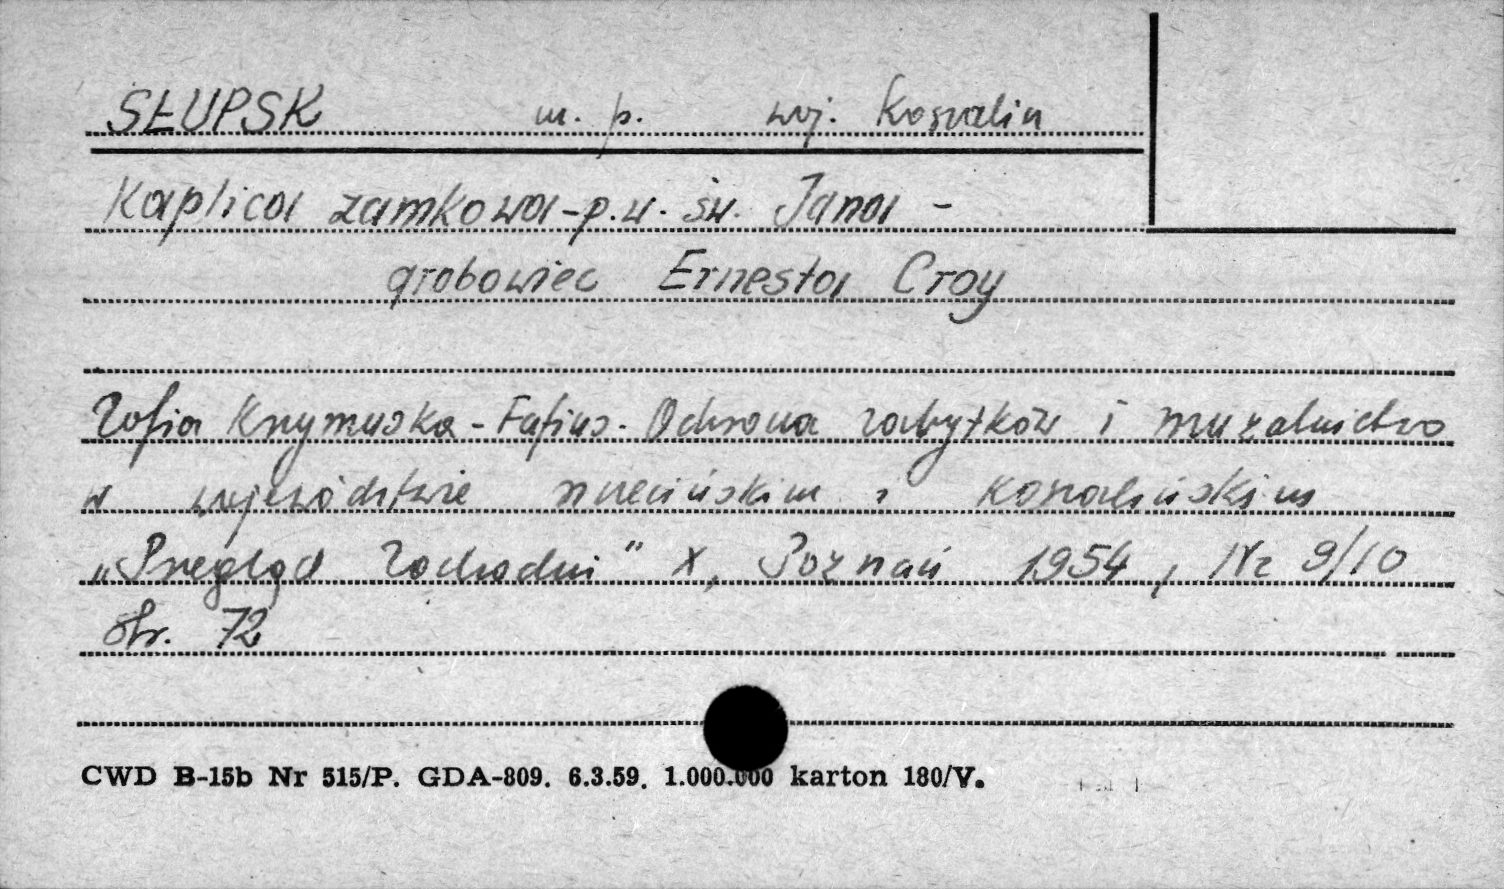 SŁUPSK m. p. woj. Koszalin
Kaplica zamkowa - p.w. św. Jana -
grobowiec Ernesta Croy
Zofia Krzymuska-Fafius. Ochrona zabytków i muzealnictwo
w województwie szczecińskim i koszalińskim
„Przegląd Zachodni" X, Poznań 1954, Nr 9/10
str. 72
CWD B-15b Nr 515/P. GDA-809. 6.3.59. 1.000.000 karton 180/V.